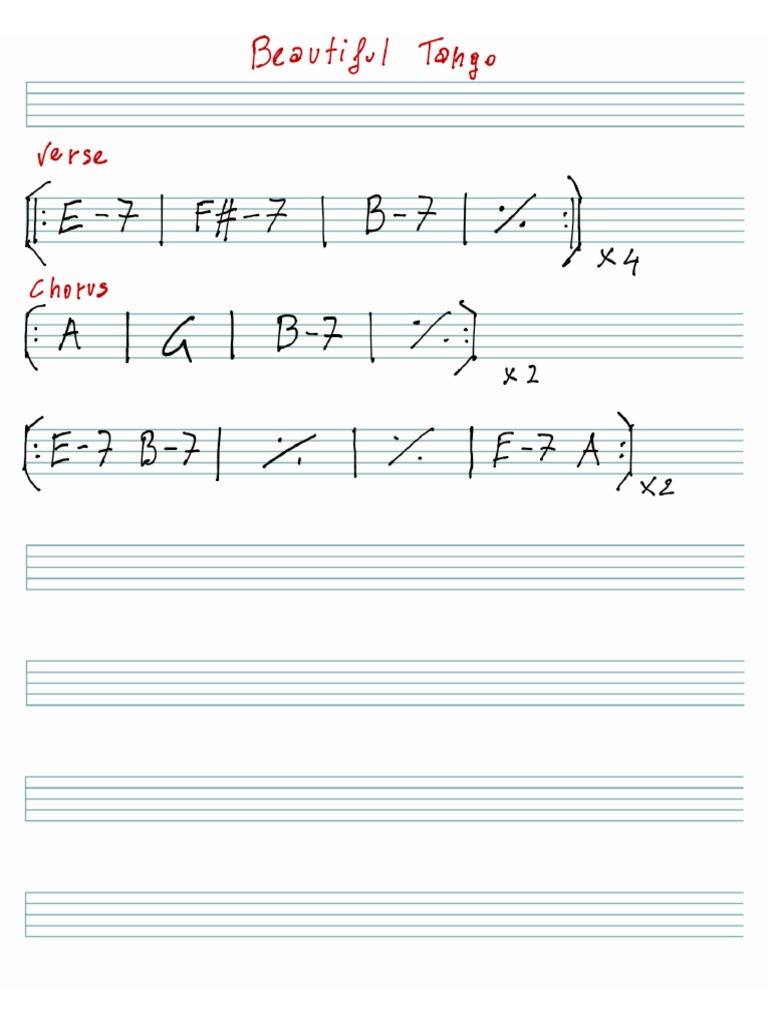 Beautiful Tango
Verse
‖: E-7 | F#-7 | B-7 | ٪ :‖ x4
Chorus
|: A | G | B-7 | ٪ :| x2
|: E-7 B-7 | ٪ | ٪ | E-7 A :| x2